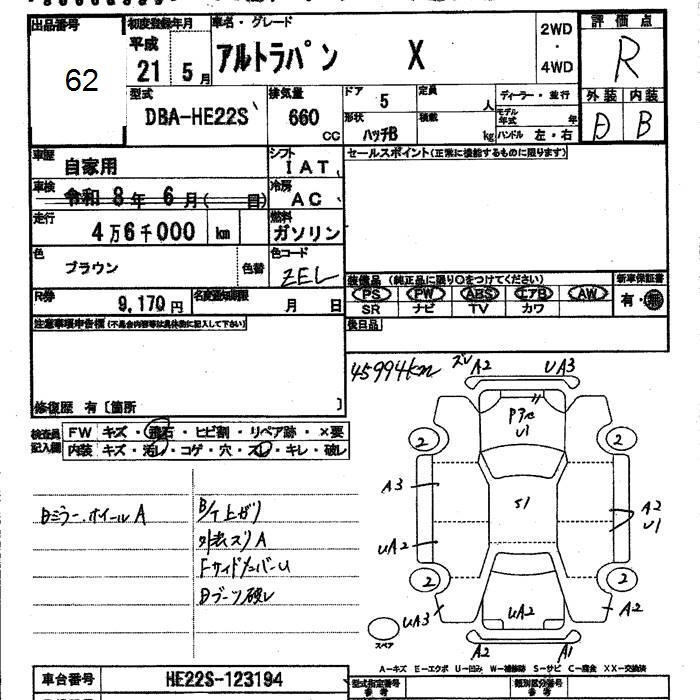 出品番号 初度登録年月 車名・グレード 評価点
62
平成 21年 5月 アルトラパン X 2WD・4WD R
型式 排気量 ドア 5 定員 人 ディーラー・並行 外装 内装
DBA-HE22S 660 CC 形状 ハッチB 積載 kg モデル年式 年 ハンドル 左・右 D B
車歴 自家用 シフト IAT セールスポイント(正常に機能するものに限ります)
車検 令和 8年 6月( 日) 冷房 AC
走行 4万6千000 km 燃料 ガソリン
色 ブラウン 色替 色コード ZEL
装備品 (純正品に限り○をつけてください) 新車保証書
PS PW ABS エアB AW 有・無
SR ナビ TV カワ
R券 9,170円 名変期限 月 日
後日品
注意事項申告欄(不具合内容等は具体的に記入して下さい)
修復歴 有〔箇所 〕
45994km ズレ A2 UA3
検査員記入欄 FW キズ・飛石・ヒビ割・リペア跡・×要
内装 キズ・汚レ・コゲ・穴・スレ・キレ・破レ
U1
2 2
A3 S1 A2
U1
Dミラー、ホイールA B/T上がり
UA2
FサイドメンバーU
Dブーツ破レ
2 2
UA3 UA2 A2
スペア
A2 A1
A-キズ E-エクボ U-凹み W-補修跡 S-サビ C-腐食 XX-交換済
車台番号 HE22S-123194 型式指定番号 参考 類別区分番号 参考